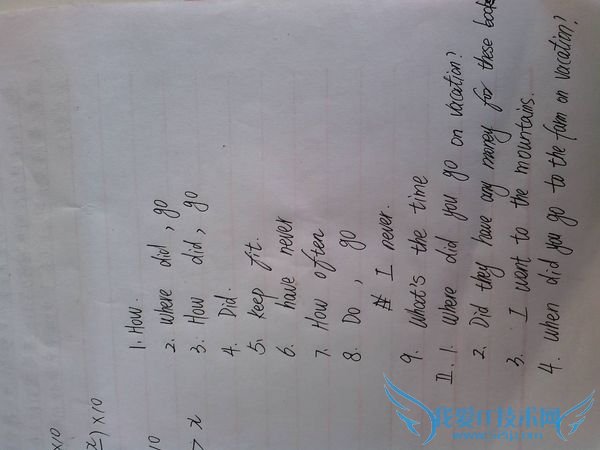 1. How.
2. where did, go
3. How did, go
4. Did.
5. keep fit.
6. have never
7. How often
8. Do, go
# I never.
9. What's the time
II. 1. Where did you go on vacation?
2. Did they have any money for these books
3. I went to the mountains.
4. when did you go to the farm on vacation?
x10
x) x10
10
> x
我爱IT技术网